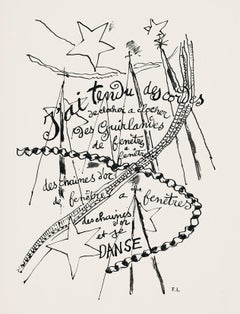 J'ai tendu des cordes
de clocher a clocher
Des Guirlandes
de fenêtre
a fenêtre
des chaines d'or
de fenêtre a fenêtres
des chaines
d'or
et je
DANSE
F.L